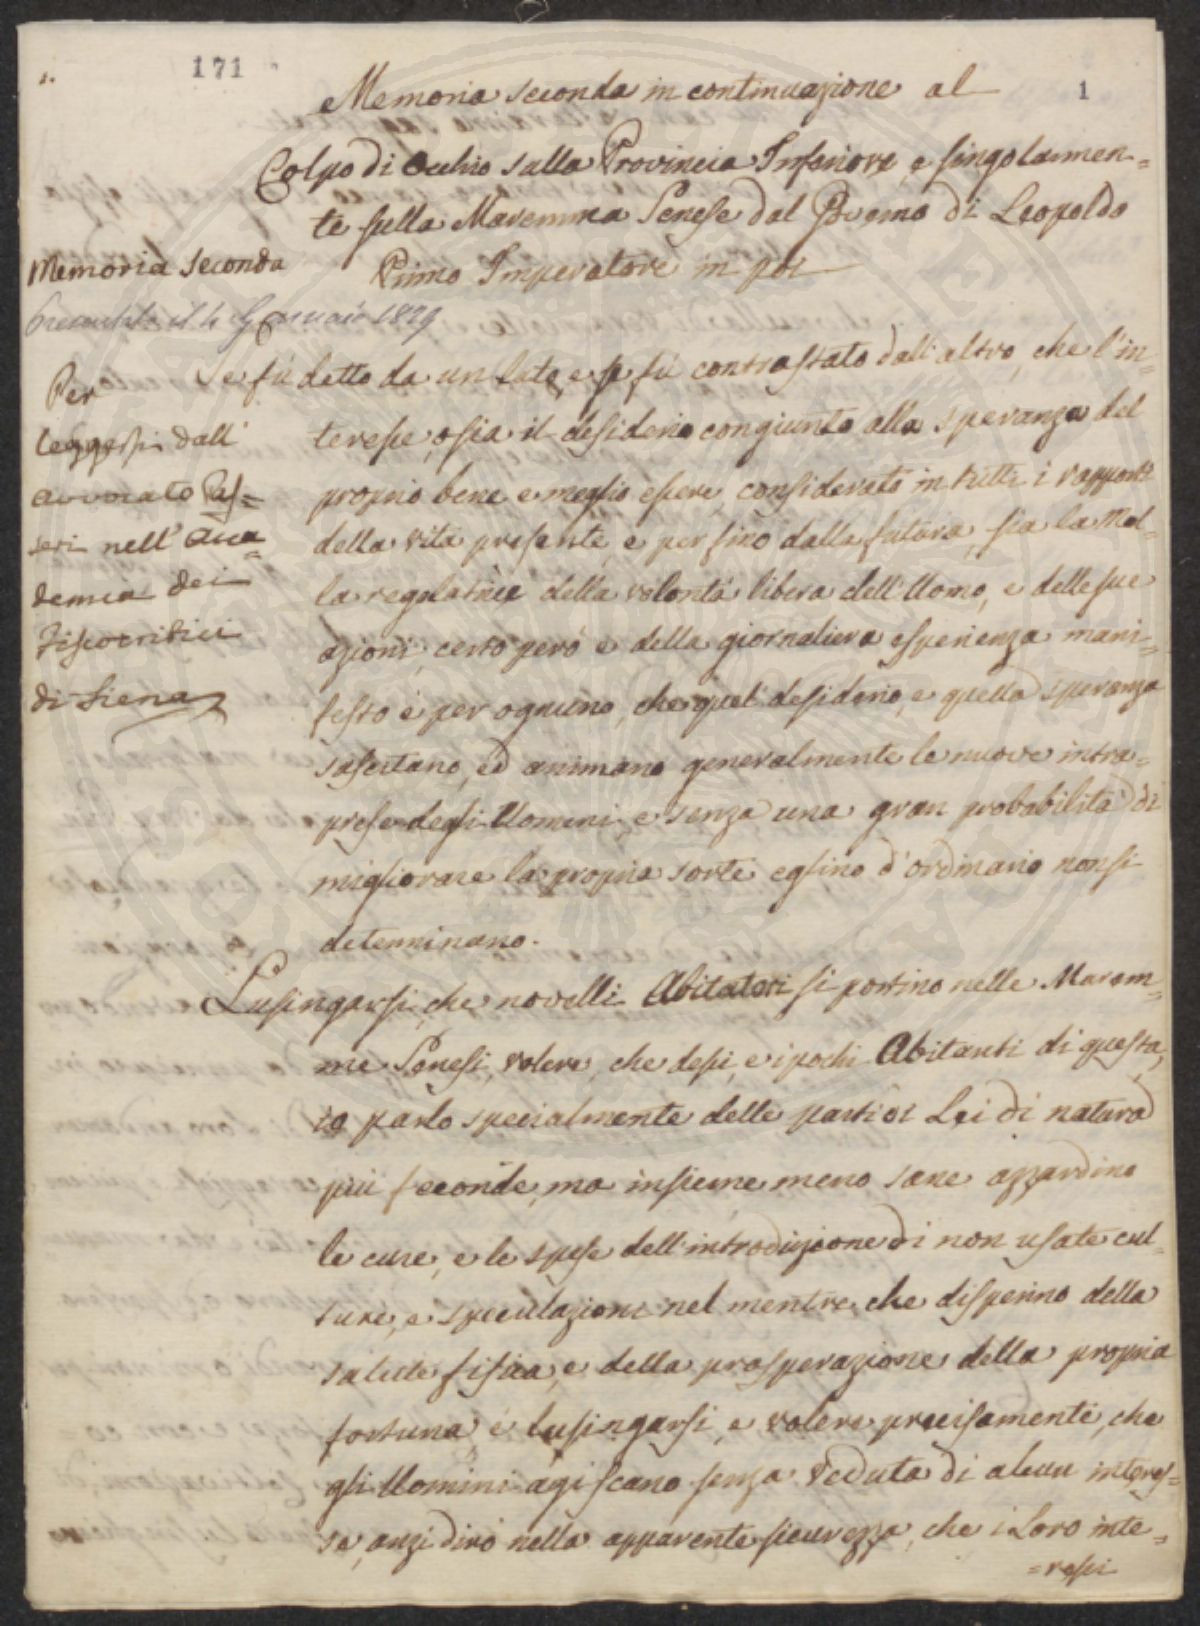 1.
171
1
Memoria seconda in continuazione al
Colpo di Occhio sulla Provincia Inferiore, e singolarmen=
te sulla Maremma Senese dal Governo di Leopoldo
Primo Imperatore in poi
Memoria seconda
il 4 Gennaio 1829
Per
leggersi dall'
avvocato Pas=
seri nell' Acca=
demia dei
Fisiocritici
di Siena
Se fù detto da un lato, e se fù contrastato dall'altro, che l'in=
teresse, ossia il desiderio congiunto alla speranza del
proprio bene e meglio essere, considerato in tutti i rapporti
della vita presente, e per fino dalla futura, sia la Mol=
la regolatrice della volontà libera dell'Uomo, e delle sue
azioni, certo però e della giornaliera esperienza mani=
festo è per ognuno, che quel desiderio, e quella speranza
suscitano, ed animano generalmente le nuove intra=
prese degli Uomini, e senza una gran probabilità di
migliorare la propria sorte eglino d'ordinario non si
determinano.
Lusingarsi, che novelli Abitatori si portino nelle Marem=
me Senesi, volere, che dessi, e i pochi Abitanti di questa,
io parlo specialmente delle parti di Lei di natura
più feconde, ma insieme meno sane azzardino
le cure, e le spese dell'introduzione di non usate cul=
ture, e speculazioni nel mentre che disperino della
salute fisica, e della prosperazione della propria
fortuna, è lusingarsi, e volere precisamente, che
gli Uomini agiscano senza veduta di alcun interes=
se, anzi dirò nella apparente sicurezza, che i Loro inte=
=ressi